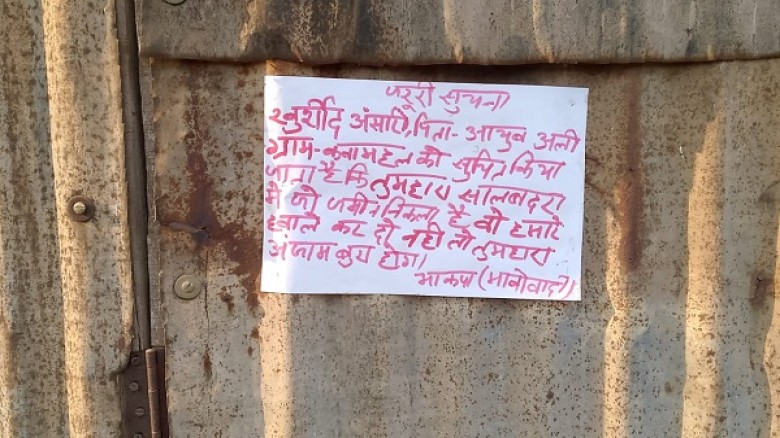 जरूरी सुचना
खुर्शीद अंसारी, पिता- आयुब अली
ग्राम- कनामहल को सुचित किया
जाता है कि तुम्हारा सालबदरा
मे जो जमीन निकला है वो हमारे
हवाले कर दो नही तो तुम्हारा
अंजाम बुरा होगा।
भाकपा (माओवादी)